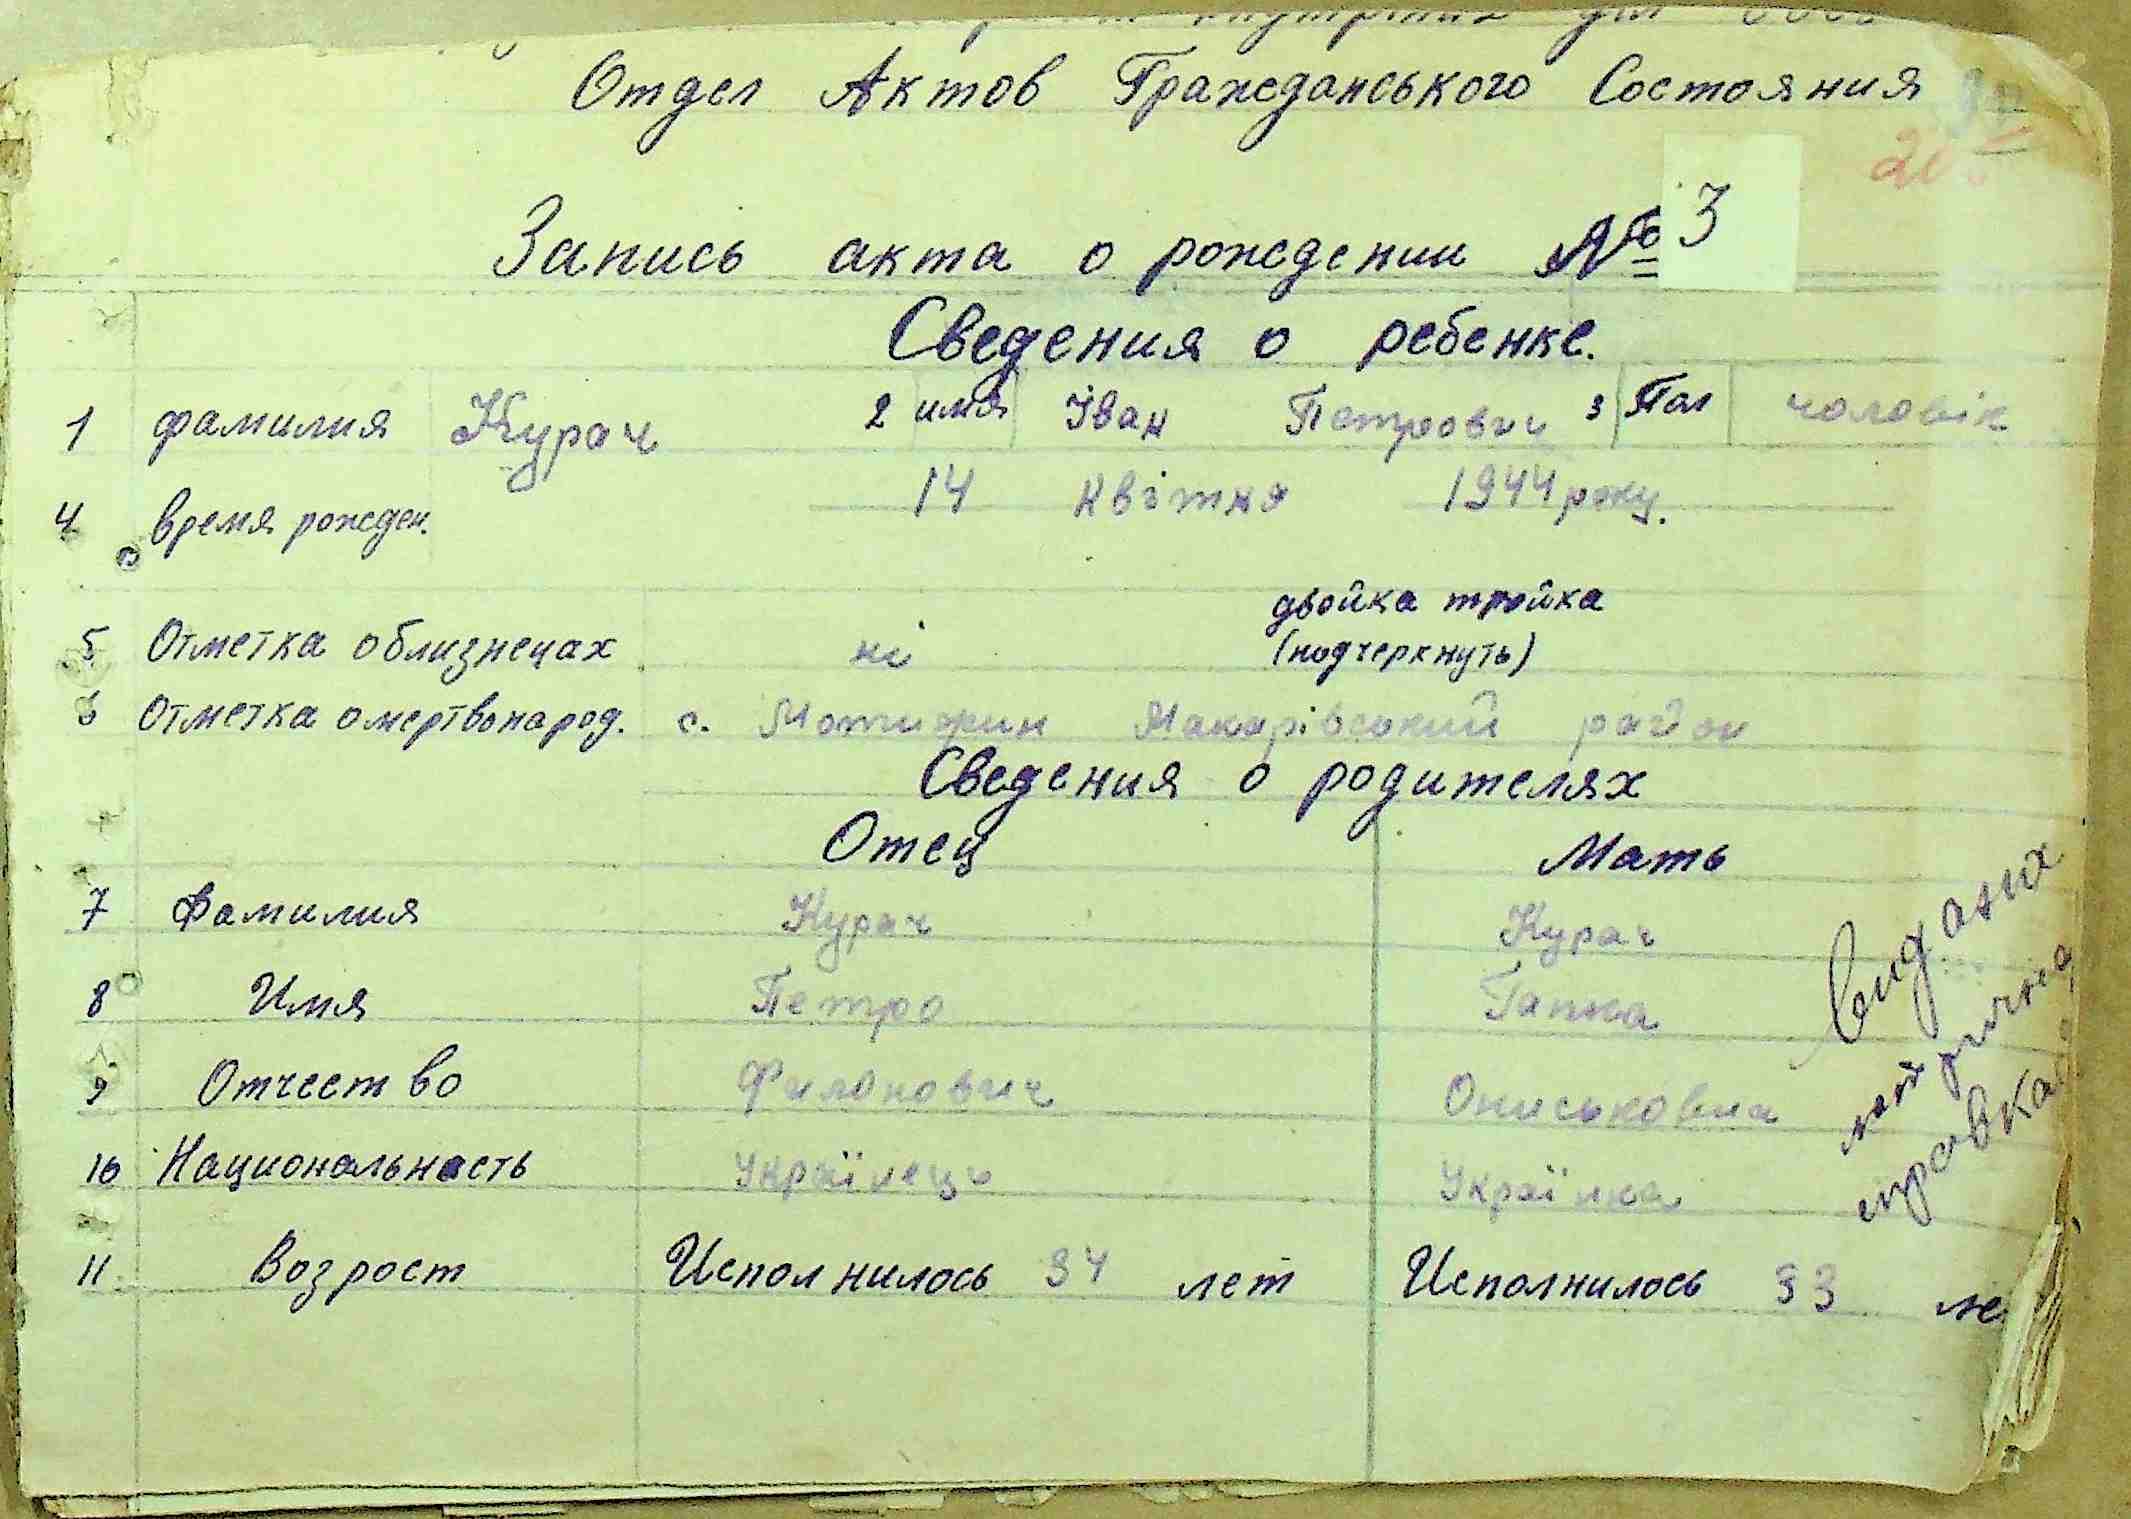 Отдел Актов Гражданського Состояния
Запись акта о рождении № 3
Сведения о ребенке.
1 фамилия Курач 2 имя Іван Петрович 3 Пол чоловік
4 время рожден. 14 квітня 1944 року.
двойка тройка
5 Отметка облизнецах ні (подчеркнуть)
6 Отметка омертвонарод. с. Мотижин Макарівський район
Сведения о родителях
Отец Мать
7 Фамилия Курач Курач
8 Имя Петро Гапка
9 Отчество Филонович Ониськовна
10 Национальность Українець Українка
11 Возрост Исполнилось 34 лет Исполнилось 33 ле
видана
метрична
справка